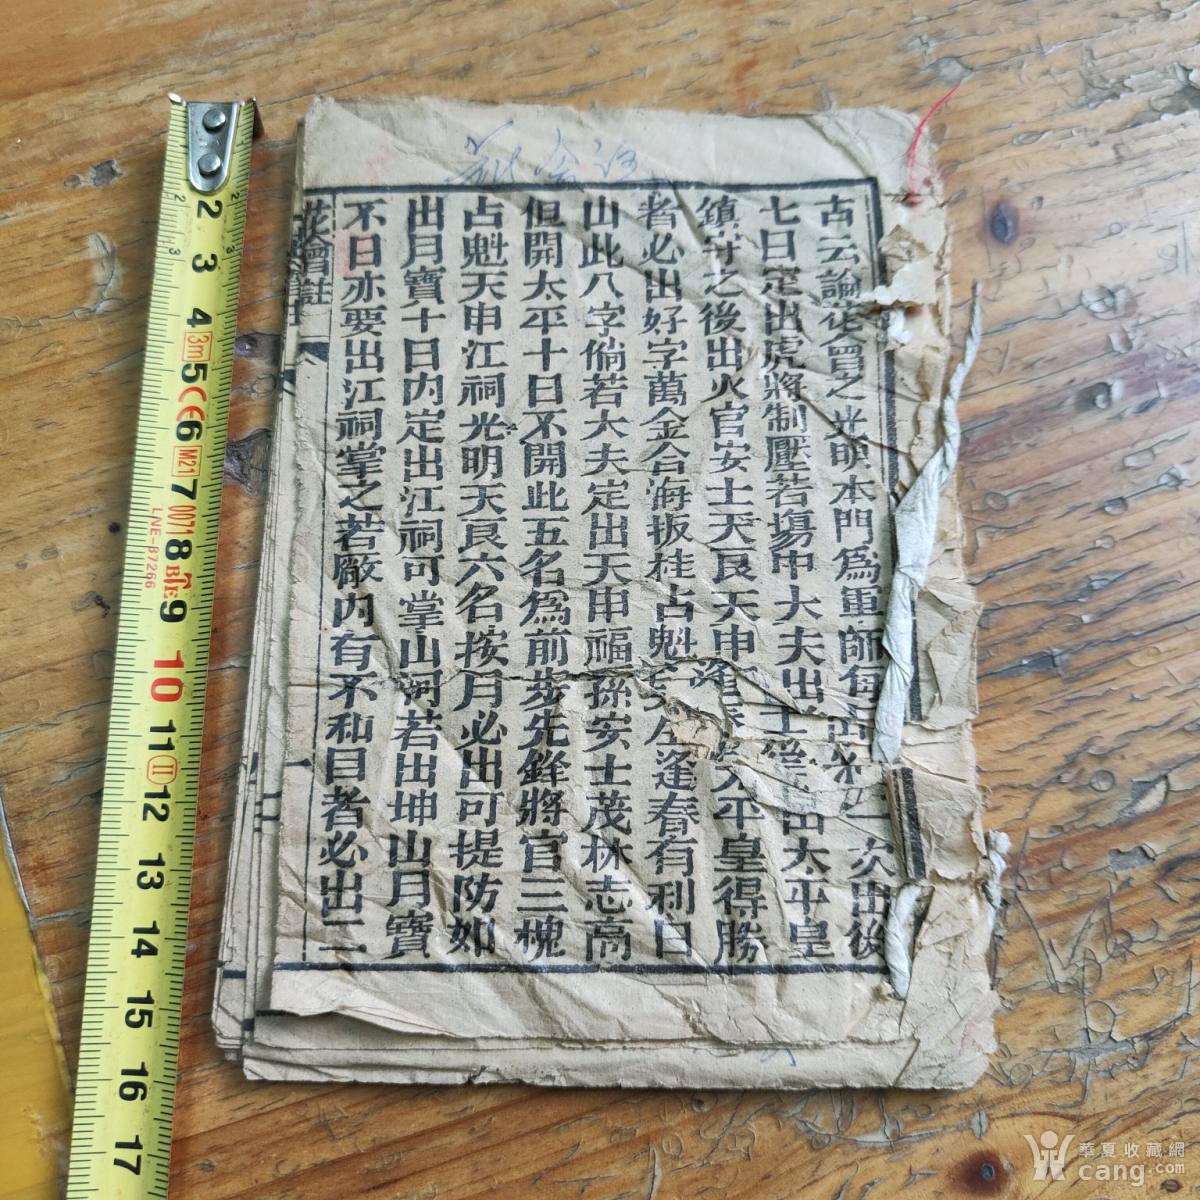 古云論花會之光明本門為軍師每出次一次出後
七日定出虎將制壓若傷申大夫出士出太平皇
鎮守之後出火官安士天良天申平皇得勝
者必出好字萬金合海扳桂占魁逢春有利日
山此八字倘若大夫定出天申福孫安士茂林志高
但開太平十日不開此五名為前步先鋒將官三槐
占魁天申江祠光明天良六名按月必出可提防如
出月寶十日內定出江祠可掌山河若出坤山月寶
不日亦要出江祠掌之若厰內有不和日者必出二
花會註
一
2
3
4
3m
5
CE
6
M21
7
0071
8
BIE
9
10
11
II
12
13
14
15
16
17
LNE-87266
華夏收藏網
cang.com